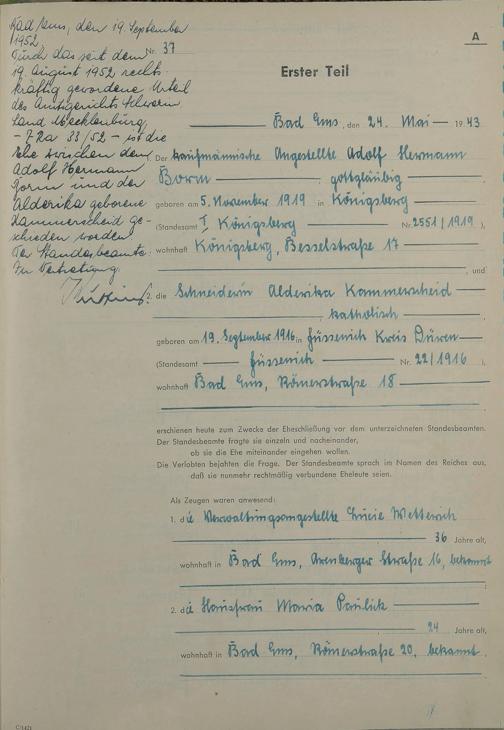 Bad Ems, den 19. September
1952.
Durch das seit dem
19. August 1952 rechts-
kräftig gewordene Urteil
des Amtsgerichts Schwerin
Land Mecklenburg,
- 7 Ra 33/52 - ist die
Ehe zwischen dem
Adolf Hermann
Borm und der
Alderika geborene
Kammerscheid ge-
schieden worden
Der Standesbeamte:
In Vertretung:
A
Nr. 37
Erster Teil
Bad Ems, den 24. Mai 1943
1. Der kaufmännische Angestellte Adolf Hermann
Borm gottgläubig
geboren am 5. November 1919 in Königsberg
(Standesamt I Königsberg Nr. 2551/1919),
wohnhaft Königsberg, Besselstraße 17
, und
2. die Schneiderin Alderika Kammerscheid
katholisch
geboren am 19. September 1916 in Füssenich Kreis Düren
(Standesamt Füssenich Nr. 22/1916),
wohnhaft Bad Ems, Römerstraße 18
erschienen heute zum Zwecke der Eheschließung vor dem unterzeichneten Standesbeamten.
Der Standesbeamte fragte sie einzeln und nacheinander,
ob sie die Ehe miteinander eingehen wollen.
Die Verlobten bejahten die Frage. Der Standesbeamte sprach im Namen des Reiches aus,
daß sie nunmehr rechtmäßig verbundene Eheleute seien.
Als Zeugen waren anwesend:
1. die Verwaltungsangestellte Lucie Wetterich
36 Jahre alt,
wohnhaft in Bad Ems, Arenberger Straße 16, bekannt
2. die Hausfrau Maria Paulick
24 Jahre alt,
wohnhaft in Bad Ems, Römerstraße 20, bekannt